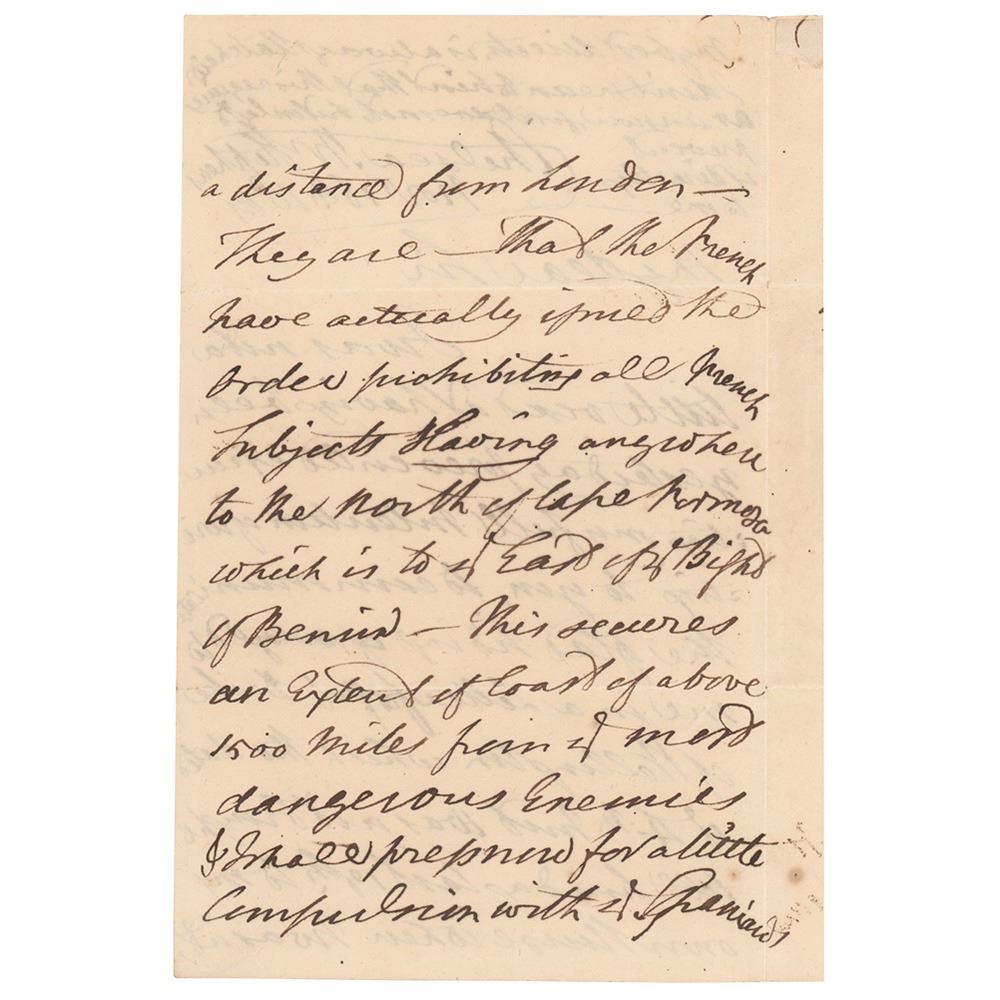 a distance from London —
They are — That the French
have actually issued the
order prohibiting all French
Subjects Slaving anywhere
to the North of Cape Formosa
which is to ye East of ye Bight
of Benin — This secures
an Extent of Coast of above
1500 Miles from ye most
dangerous Enemies
& I shall press now for a little
Compulsion with ye Spaniards